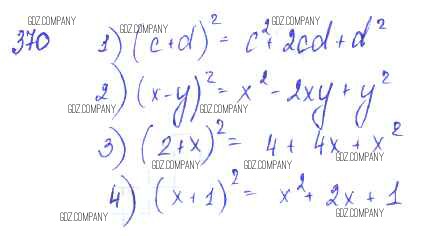 GDZ.COMPANY GDZ.COMPANY GDZ.COMPANY
370 1) (c+d)² = c² + 2cd + d²
2) (x-y)² = x² - 2xy + y²
GDZ.COMPANY GDZ.COMPANY GDZ.COMPANY
3) (2+x)² = 4 + 4x + x²
GDZ.COMPANY GDZ.COMPANY GDZ.COMPANY
4) (x+1)² = x² + 2x + 1
GDZ.COMPANY GDZ.COMPANY